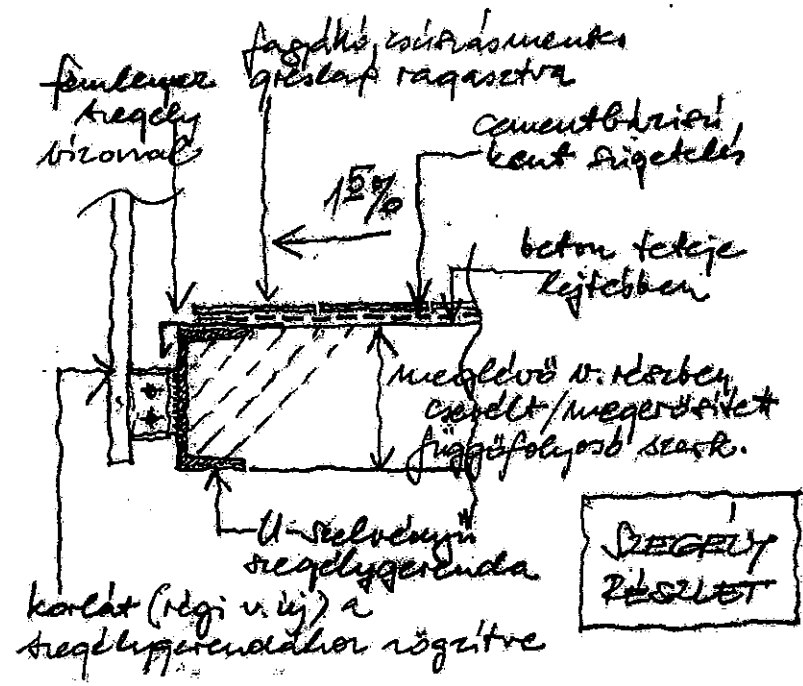 fagyálló, csúszásmentes
greslap ragasztva
fémlemez
szegély
vízorral
cementbázisú
kent szigetelés
1⁵%
beton teteje
lejtésben
meglévő v. részben
cserélt/megerősített
függőfolyosó szerk.
U-szelvényű
szegélygerenda
SZEGÉLY
RÉSZLET
korlát (régi v. új) a
szegélygerendához rögzítve